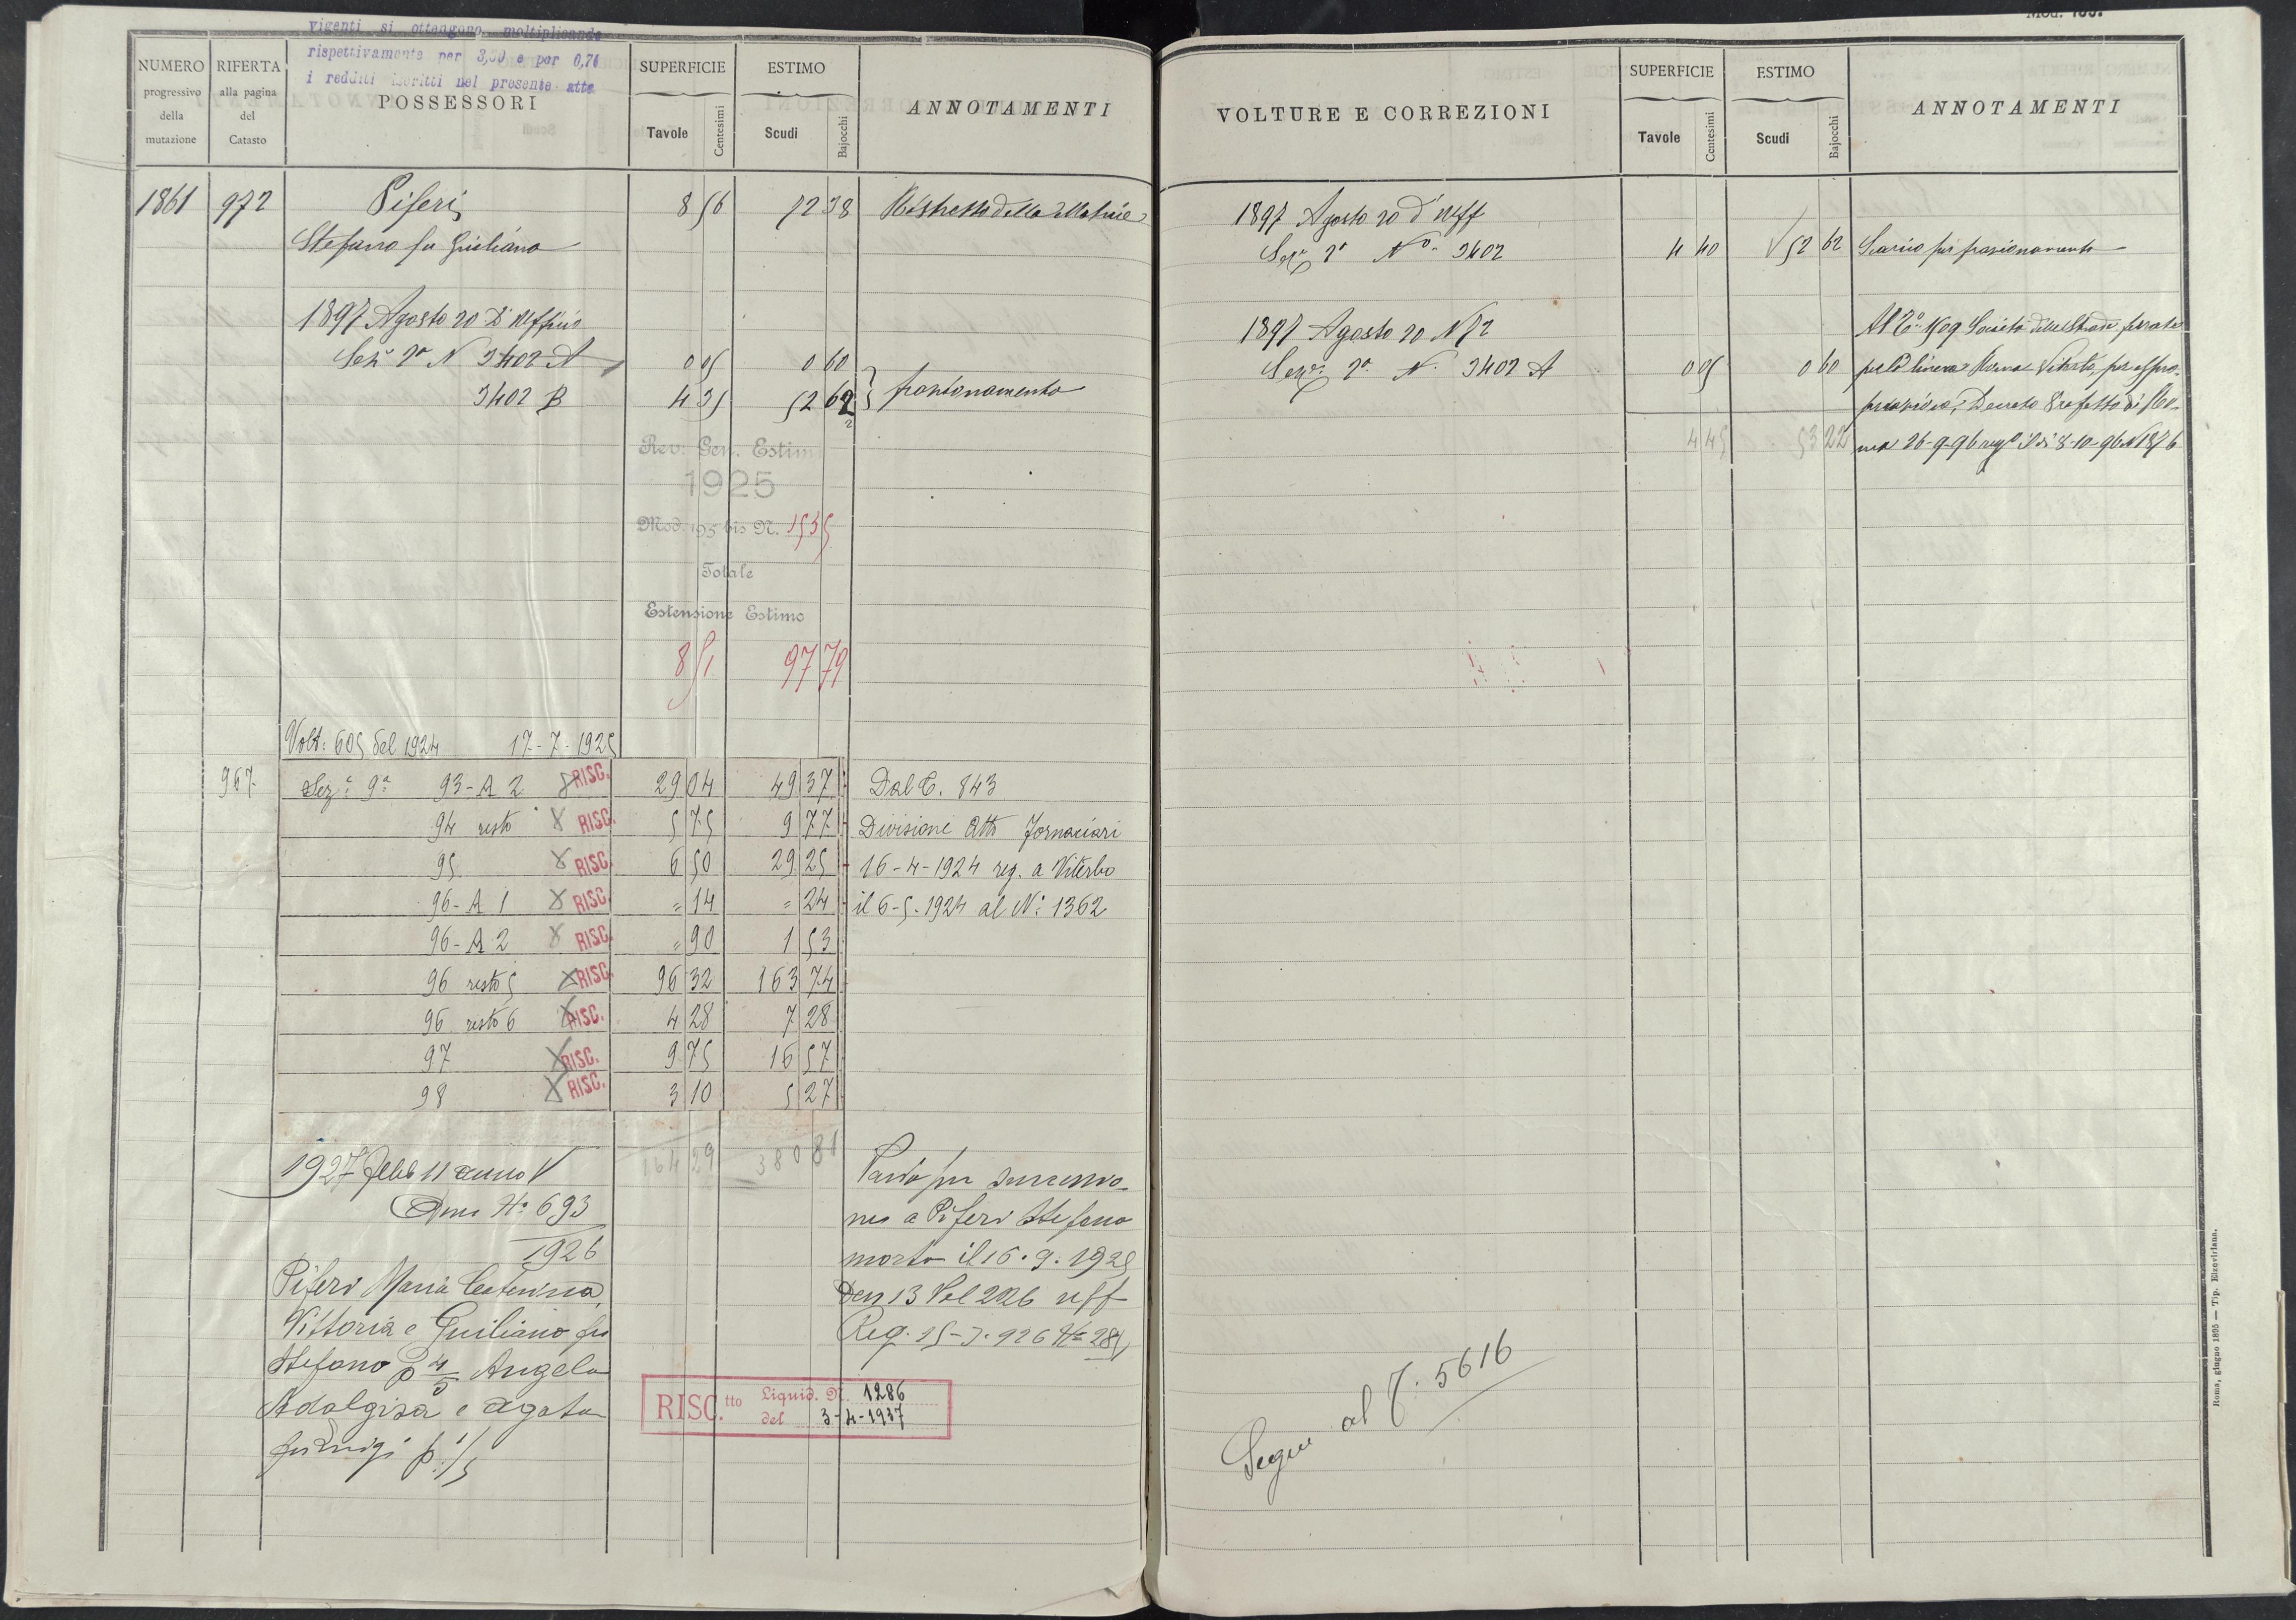 vigenti si ottengono moltiplicando
rispettivamente per 3,50 e per 0,74
i redditi iscritti nel presente atto
NUMERO progressivo della mutazione
RIFERTA alla pagina del Catasto
POSSESSORI
SUPERFICIE Tavole Centesimi
ESTIMO Scudi Bajocchi
ANNOTAMENTI
1861 972 Piferi 8 56
Stefano fu Giuliano
1897 Agosto 20 D'Ufficio
Sezne 2a N 3402 A 0 05 0 60
3402 B 4 35 52 62 frazionamento
Rev: Gen. Estimi
1925
Mod. 195 bis N. 1535
Totale
Estensione Estimo
8 51 97 79
Volt: 605 del 1924 17-7-1925
967 Sez: 9a 93-A 2 RISC. 29 04 49 37 Dal C. 843
94 resto RISC. 5 75 9 77 Divisione Atto Fornaciari
95 RISC. 6 50 29 25 16-4-1924 reg. a Viterbo
96-A 1 RISC. = 14 = 24 il 6-5-1924 al N: 1362
96-A 2 RISC. = 90 1 53
96 resto 5 RISC. 96 32 163 74
96 resto 6 RISC. 4 28 7 28
97 RISC. 9 75 16 57
98 RISC. 3 10 5 27
164 29 380 81
1927 Febb 11 anno V
No 693
1926
Piferi Maria Caterina,
Vittoria e Giuliano fu
Stefano p 4/5 Angela
Adalgisa e Agata
fu Luigi p. 1/5
ne a Piferi Stefano
morto il 16.9.1925
Den 13 Vol 226 uff
RISC.tto Liquid. N. 1286
del 3-4-1937
Mod.
VOLTURE E CORREZIONI
SUPERFICIE Tavole Centesimi
ESTIMO Scudi Bajocchi
ANNOTAMENTI
1897 Agosto 20 d'Uff
Sezne 2a No 3402 4 40 52 62 Scarico per frazionamento
1897 Agosto 20 N 72
Sezne 2a N. 3402 A 0 05 0 60
Al Co 1509 Società delle Strade ferrate
per la linea Roma Viterbo, per espro-
priazione, Decreto Prefetto di Ro-
4 45 53 22 ma 26-9-96 rego il dì 8-10-96 N 1876
Segue al C. 5616
Roma, giugno 1895 — Tip. Elzeviriana.